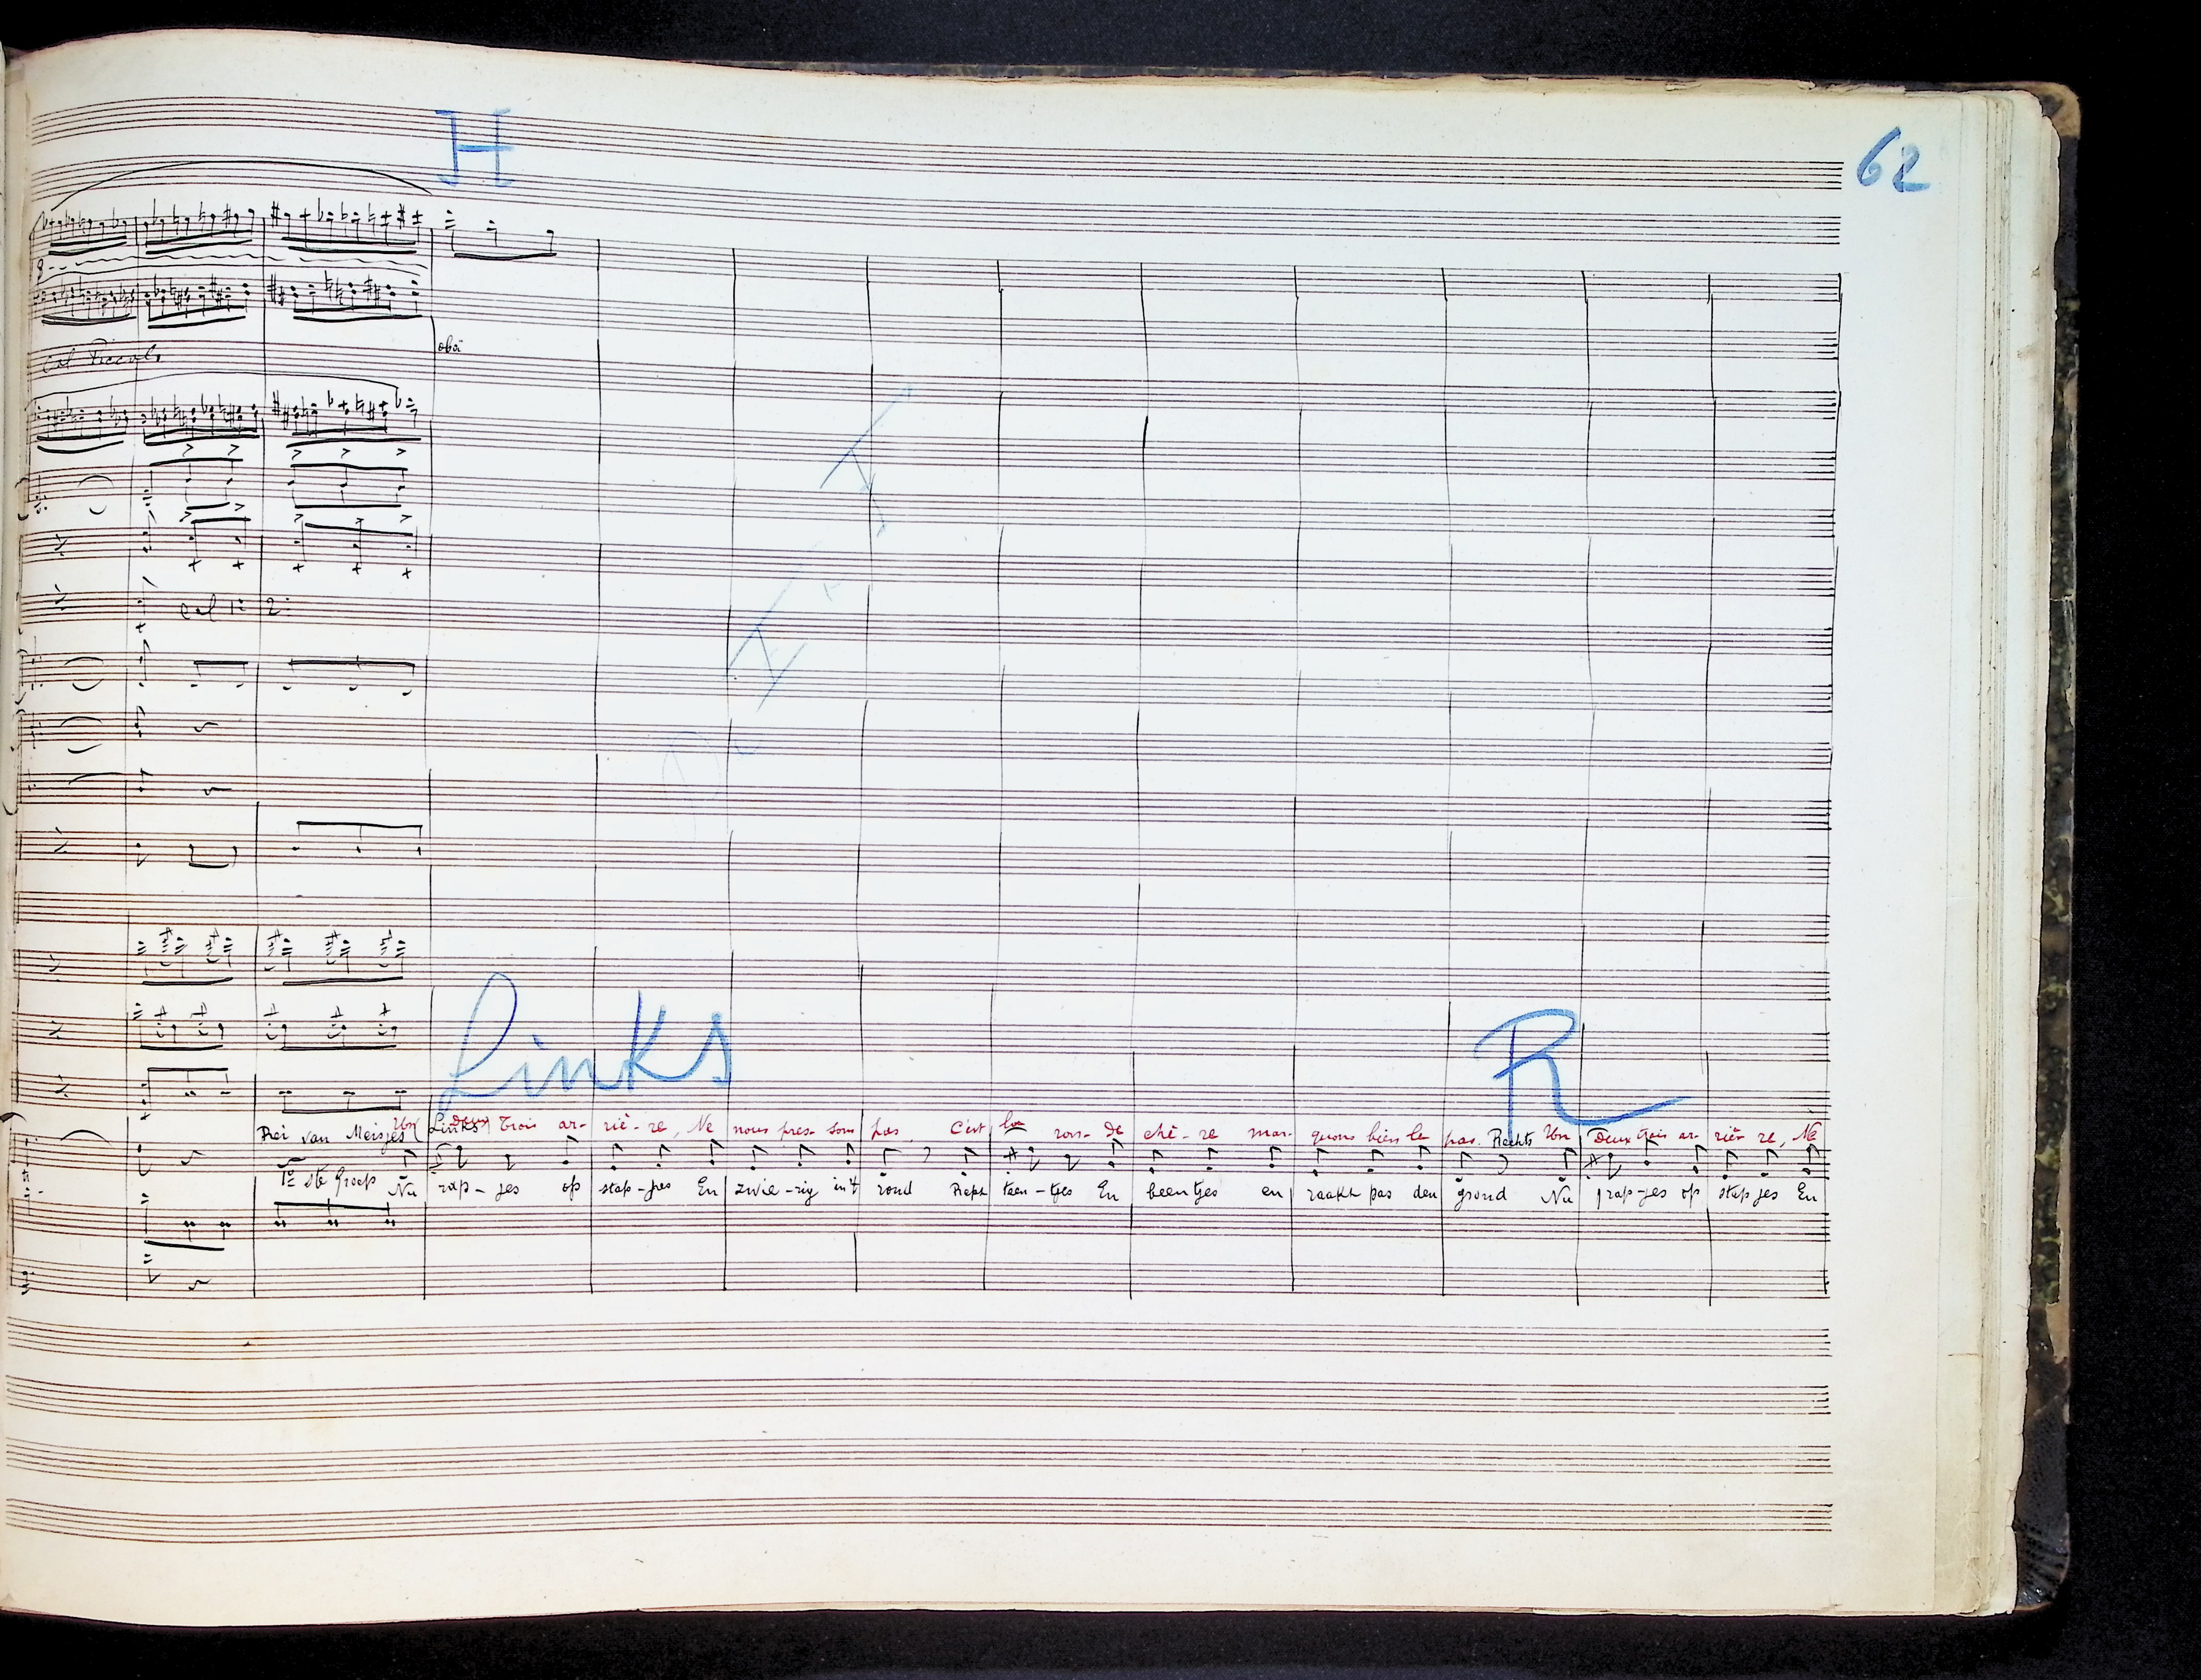 H
62
8
Col Piccolo
oboi
col 1º 2º
Links R
Un Deux Trois ar- riè- re, Ne nous pres- sons pas, C'est la ron- de chè- re mar- quons bien le pas. Rechts Un Deux trois ar- riè- re, Ne
Rei van Meisjes Links
1e ste Groep Nu rap- jes op stap- jes En zwie- rig in't rond Recht teen- tjes En been tjes en raakt pas den grond Nu rap- jes op stap jes En